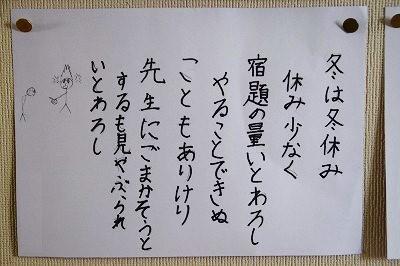 冬は冬休み
休み少なく
宿題の量いとわろし
やることできぬ
こともありけり
先生にごまかそうと
するも見やぶられ
いとわろし